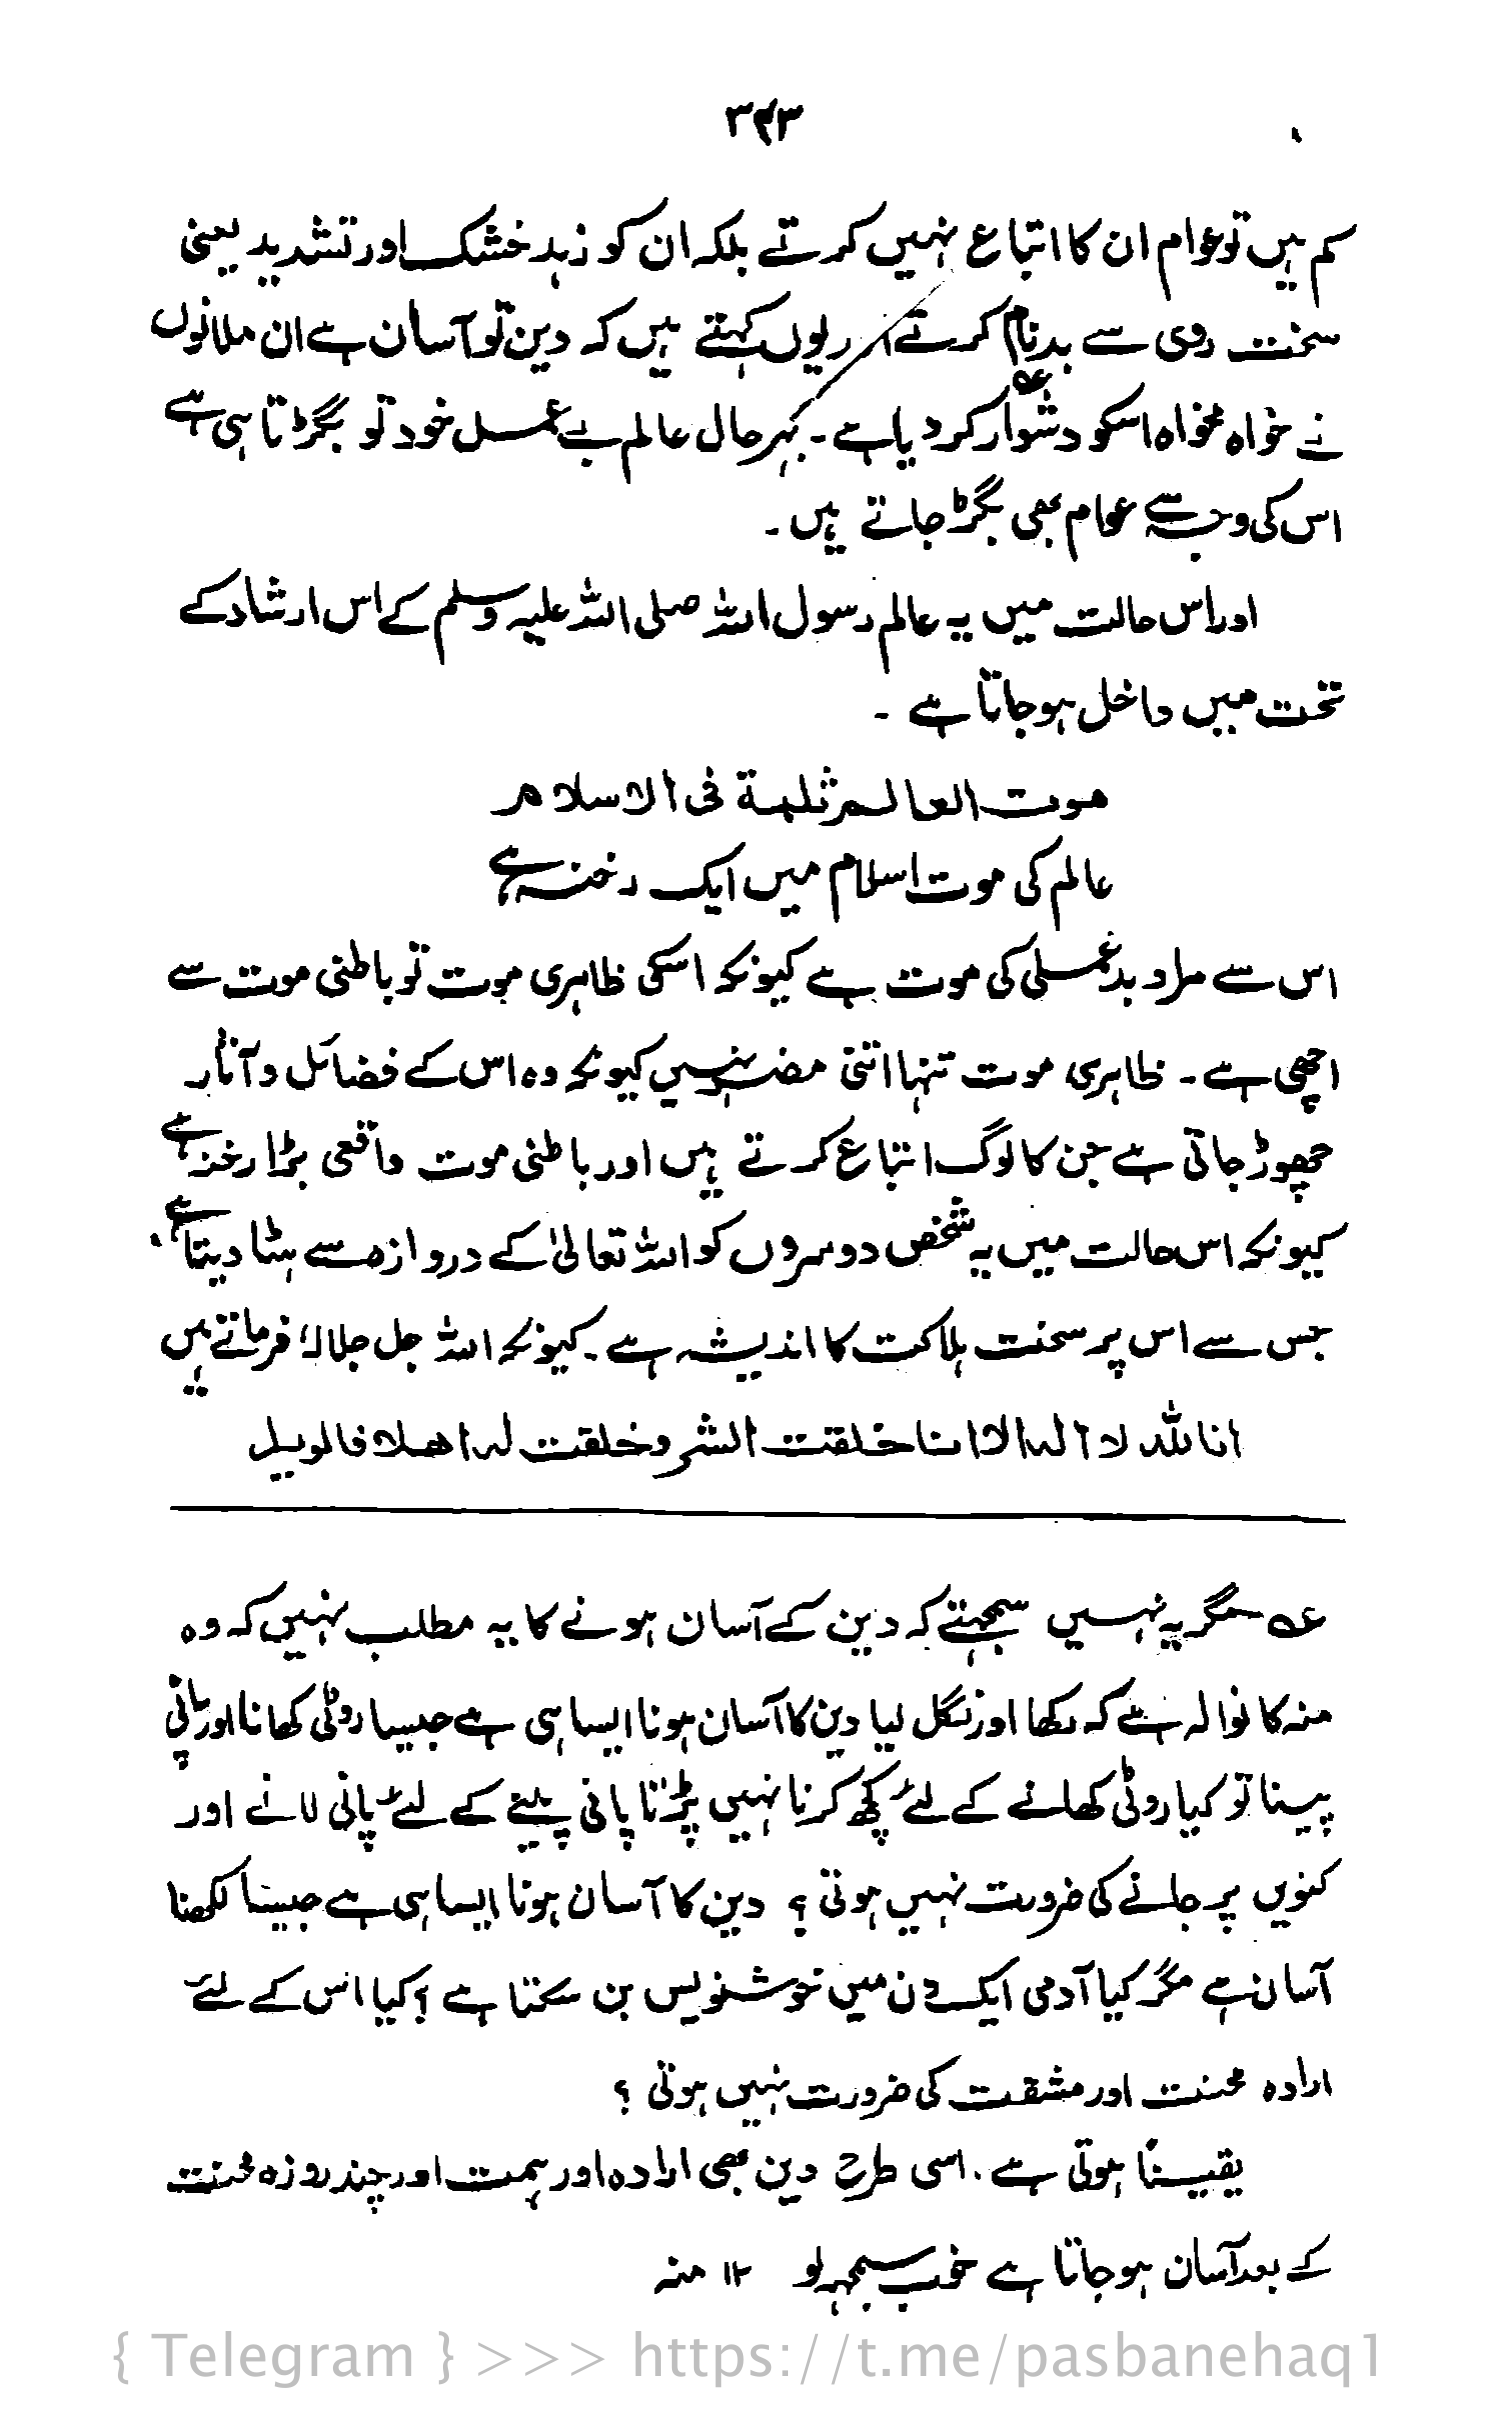 ۳۴۳
کم ہیں تو عوام ان کا اتباع نہیں کرتے بلکہ ان کو زہد خشک اور تشدید یعنی
سخت روی سے بدنام کرتے اور یوں کہتے ہیں کہ دین تو آسان ہے ان ملانوں
نے خواہ مخواہ اسکو دشوار کر دیا ہے ۔ بہر حال عالم بے عمل خود تو بگڑتا ہی ہے
اس کی وجہ سے عوام بھی بگڑ جاتے ہیں ۔
اور اس حالت میں یہ عالم رسول اللہ صلی اللہ علیہ وسلم کے اس ارشاد کے
تحت میں داخل ہو جاتا ہے ۔
موت العالم ثلمة فی الاسلام
عالم کی موت اسلام میں ایک رخنہ ہے
اس سے مراد بدعملی کی موت ہے کیونکہ اسکی ظاہری موت تو باطنی موت سے
اچھی ہے ۔ ظاہری موت تنہا اتنی مضر نہیں کیونکہ وہ اس کے فضائل و آثار
چھوڑ جاتی ہے جن کا لوگ اتباع کرتے ہیں اور باطنی موت واقعی بڑا رخنہ ہے
کیونکہ اس حالت میں یہ شخص دوسروں کو اللہ تعالیٰ کے دروازہ سے ہٹا دیتا ہے
جس سے اس پر سخت ہلاکت کا اندیشہ ہے ۔ کیونکہ اللہ جل جلالہٗ فرماتے ہیں
انا للہ لا الہ الا انا خلقت الشر وخلقت لہ اھلا فالویل
عہ مگر یہ نہیں سمجھتے کہ دین کے آسان ہونے کا یہ مطلب نہیں کہ وہ
منہ کا نوالہ ہے کہ رکھا اور نگل لیا دین کا آسان ہونا ایسا ہی ہے جیسا روٹی کھانا اور پانی
پینا تو کیا روٹی کھانے کے لئے کچھ کرنا نہیں پڑتا پانی پینے کے لئے پانی لانے اور
کنویں پر جانے کی ضرورت نہیں ہوتی ؟ دین کا آسان ہونا ایسا ہی ہے جیسا لکھنا
آسان ہے مگر کیا آدمی ایک دن میں خوشنویس بن سکتا ہے ؟ کیا اس کے لئے
ارادہ محنت اور مشقت کی ضرورت نہیں ہوتی ؟
یقیناً ہوتی ہے . اسی طرح دین بھی ارادہ اور ہمت اور چند روزہ محنت
کے بعد آسان ہو جاتا ہے خوب سمجہہ لو ۱۲ منہ
{ Telegram } >>> https://t.me/pasbanehaq1